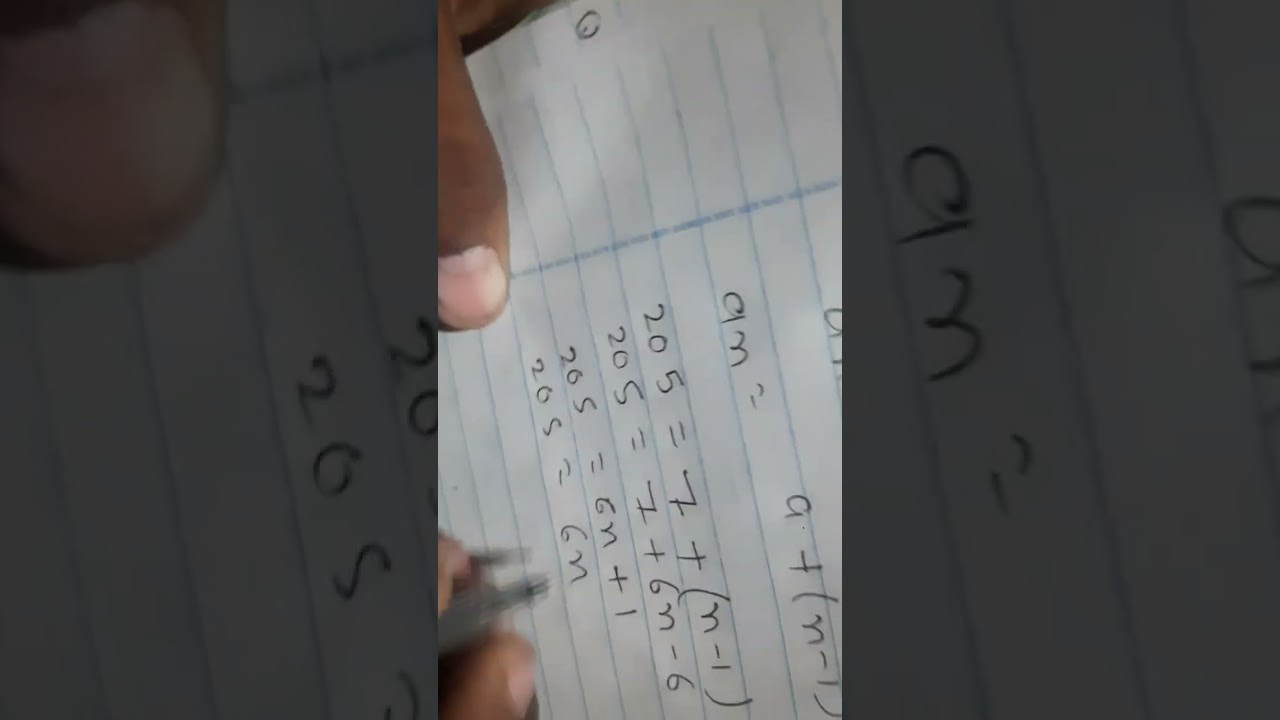 an = a + (n-1)
205 = 7 + (n-1)
205 = 7 + 6n - 6
205 = 6n + 1
205 = 6n